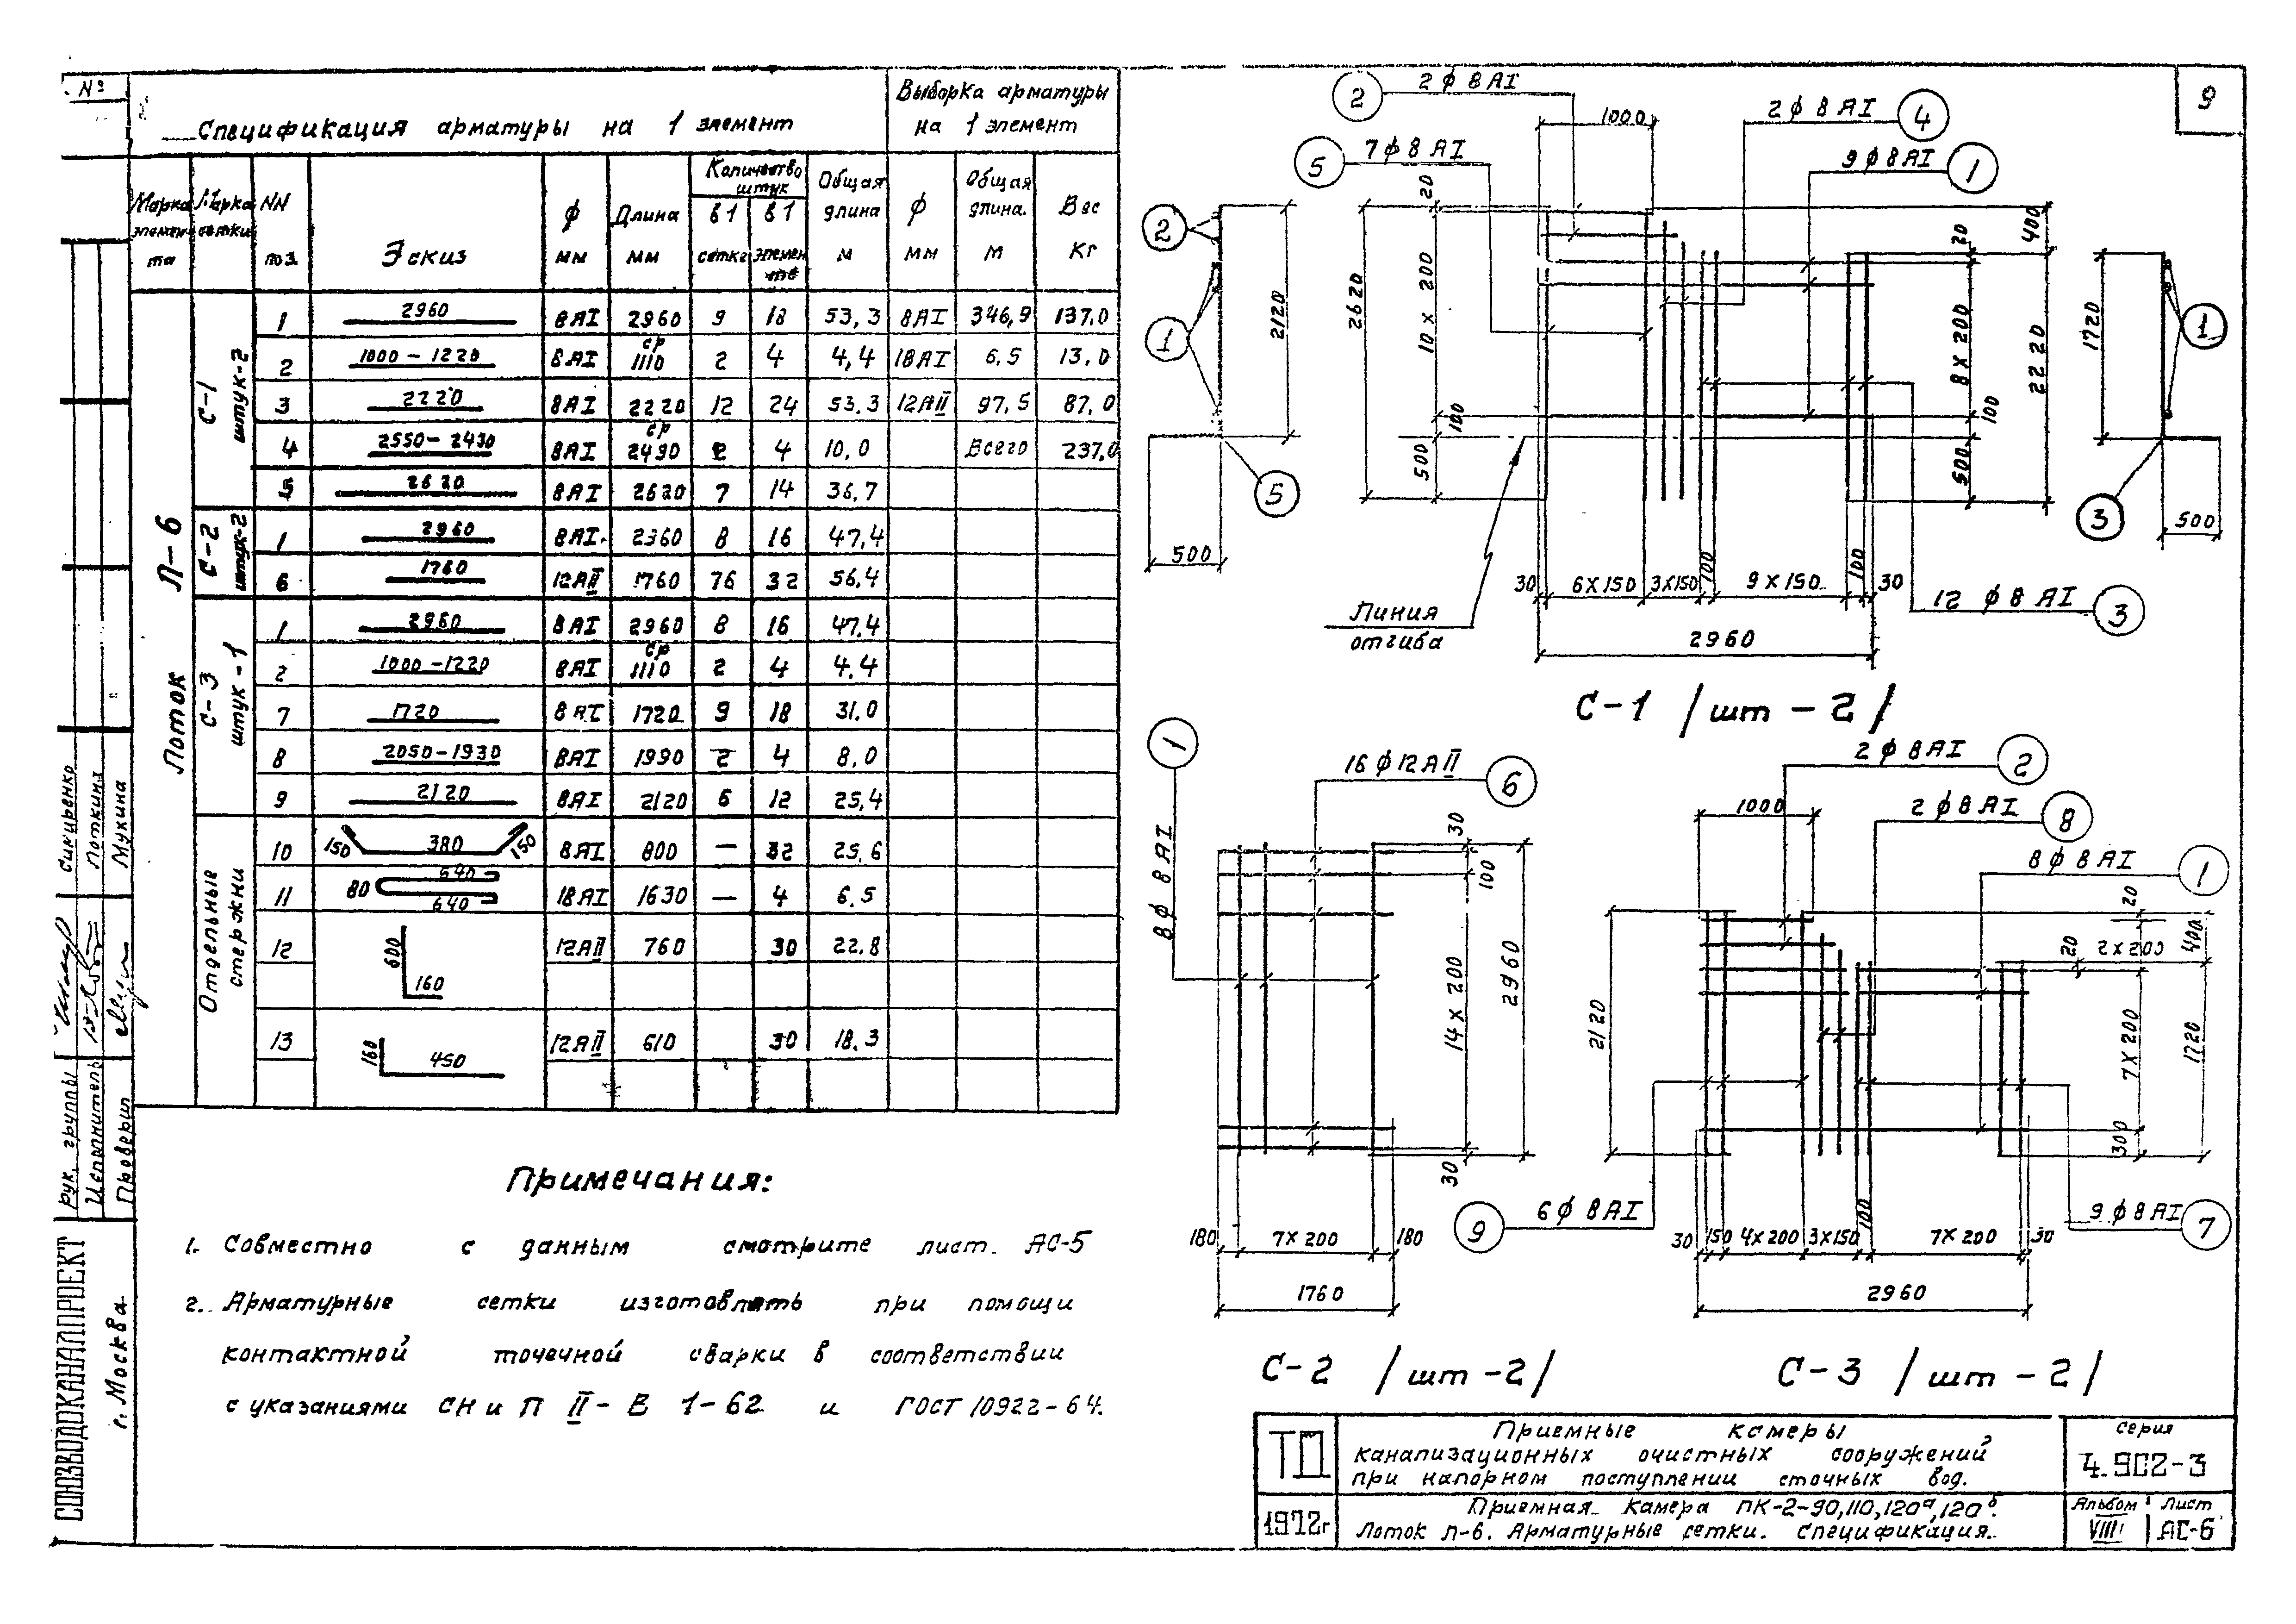 №
9
Спецификация арматуры на 1 элемент
Выборка арматуры
на 1 элемент
Марка элемен-та | Марка сетки | NN поз. | Эскиз | ф мм | Длина мм | Количество штук в 1 сетке | в 1 элементе | Общая длина м | ф мм | Общая длина. м | Вес Кг
Лоток Л-6
С-1 штук-2
1 2960 8АI 2960 9 18 53,3 8АI 346,9 137,0
2 1000-1220 8АI ср 1110 2 4 4,4 18АI 6,5 13,0
3 2220 8АI 2220 12 24 53.3 12АII 97,5 87,0
4 2550-2430 8АI ср 2490 2 4 10,0 Всего 237,0
5 2620 8АI 2620 7 14 36,7
С-2 штук-2
1 2960 8АI 2360 8 16 47,4
6 1760 12АII 1760 76 32 56,4
С-3 штук-1
1 2960 8АI 2960 8 16 47,4
2 1000-1220 8АI ср 1110 2 4 4.4
7 1720 8АI 1720 9 18 31.0
8 2050-1930 8АI 1990 2 4 8,0
9 2120 8АI 2120 6 12 25,4
Отдельные стержни
10 150 380 150 8АI 800 — 32 25,6
11 80 640 640 18АI 1630 — 4 6.5
12 600 160 12АII 760 30 22.8
13 160 450 12АII 610 30 18.3
Примечания:
1. Совместно с данным смотрите лист АС-5
2. Арматурные сетки изготовлять при помощи
контактной точечной сварки в соответствии
с указаниями СНиП II-В 1-62 и ГОСТ 10922-64.
2 2ф8АI
5 7ф8АI
1000
2ф8АI 4
9ф8АI 1
2
1
5
2120
500
2620
20
10 х 200
100
500
20
400
8 х 200
100
500
2220
1720
1
3
500
30 6х150 3х150 100 9х150 100 30
2960
Линия
отгиба
12 ф8АI 3
С-1 /шт-2/
1
8ф8АI
16ф12АII 6
30
100
14 х 200
2960
30
180 7х200 180
1760
С-2 /шт-2/
2ф8АI 2
1000
2ф8АI 8
8ф8АI 1
2120
20
20
2х200
400
7х200
1720
300
9 6ф8АI
9ф8АI 7
30 150 4х200 3х150 100 7х200 30
2960
С-3 /шт-2/
рук. группы Сикиренко
Исполнитель Поткина
Проверил Мухина
СОЮЗВОДОКАНАЛПРОЕКТ
г. Москва
ТД
1972г
Приемные камеры
канализационных очистных сооружений
при напорном поступлении сточных вод.
Приемная камера ПК-2-90,110,120ᵃ,120ᵇ.
Лоток Л-6. Арматурные сетки. Спецификация.
серия
4.902-3
Альбом Лист
VIII АС-6